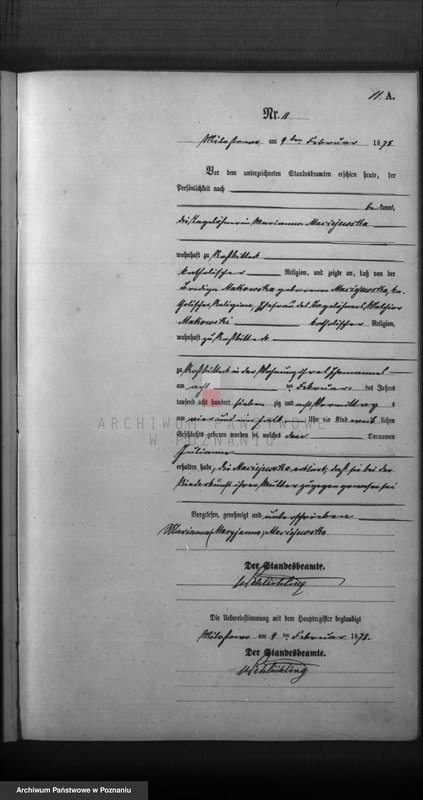 11. A.
Nr. 11
Milostowo am 9ten Februar 1878.
Vor dem unterzeichneten Standesbeamten erschien heute, der
Persönlichkeit nach
be kannt,
die Tagelöhnerin Marianna Maciejewska
wohnhaft zu
katholischer Religion, und zeigte an, daß von der
Makowska geborenen Maciejewska, ka-
tholischer Religion, Ehefrau des Tagelöhners Melchior
Makowski katholischer Religion,
wohnhaft zu
zu in der Wohnung ihres Ehemannes
am acht ten Februar des Jahres
tausend acht hundert sieben zig und acht Vormittag s
um vier und ein halb Uhr ein Kind weib lichen
Geschlechts geboren worden sei, welches den Vornamen
Julianna
erhalten habe, die Maciejewska erklärt, daß sie bei der
Niederkunft ihrer Mutter zugegen gewesen sei
Vorgelesen, genehmigt und unterschrieben
Marianna Maryjanna Maciejewska
Der Standesbeamte.
Die Uebereinstimmung mit dem Hauptregister beglaubigt
Milostowo am 9ten Februar 1878.
Der Standesbeamte.
ARCHIWUM PAŃSTWOWE
W POZNANIU
Archiwum Państwowe w Poznaniu